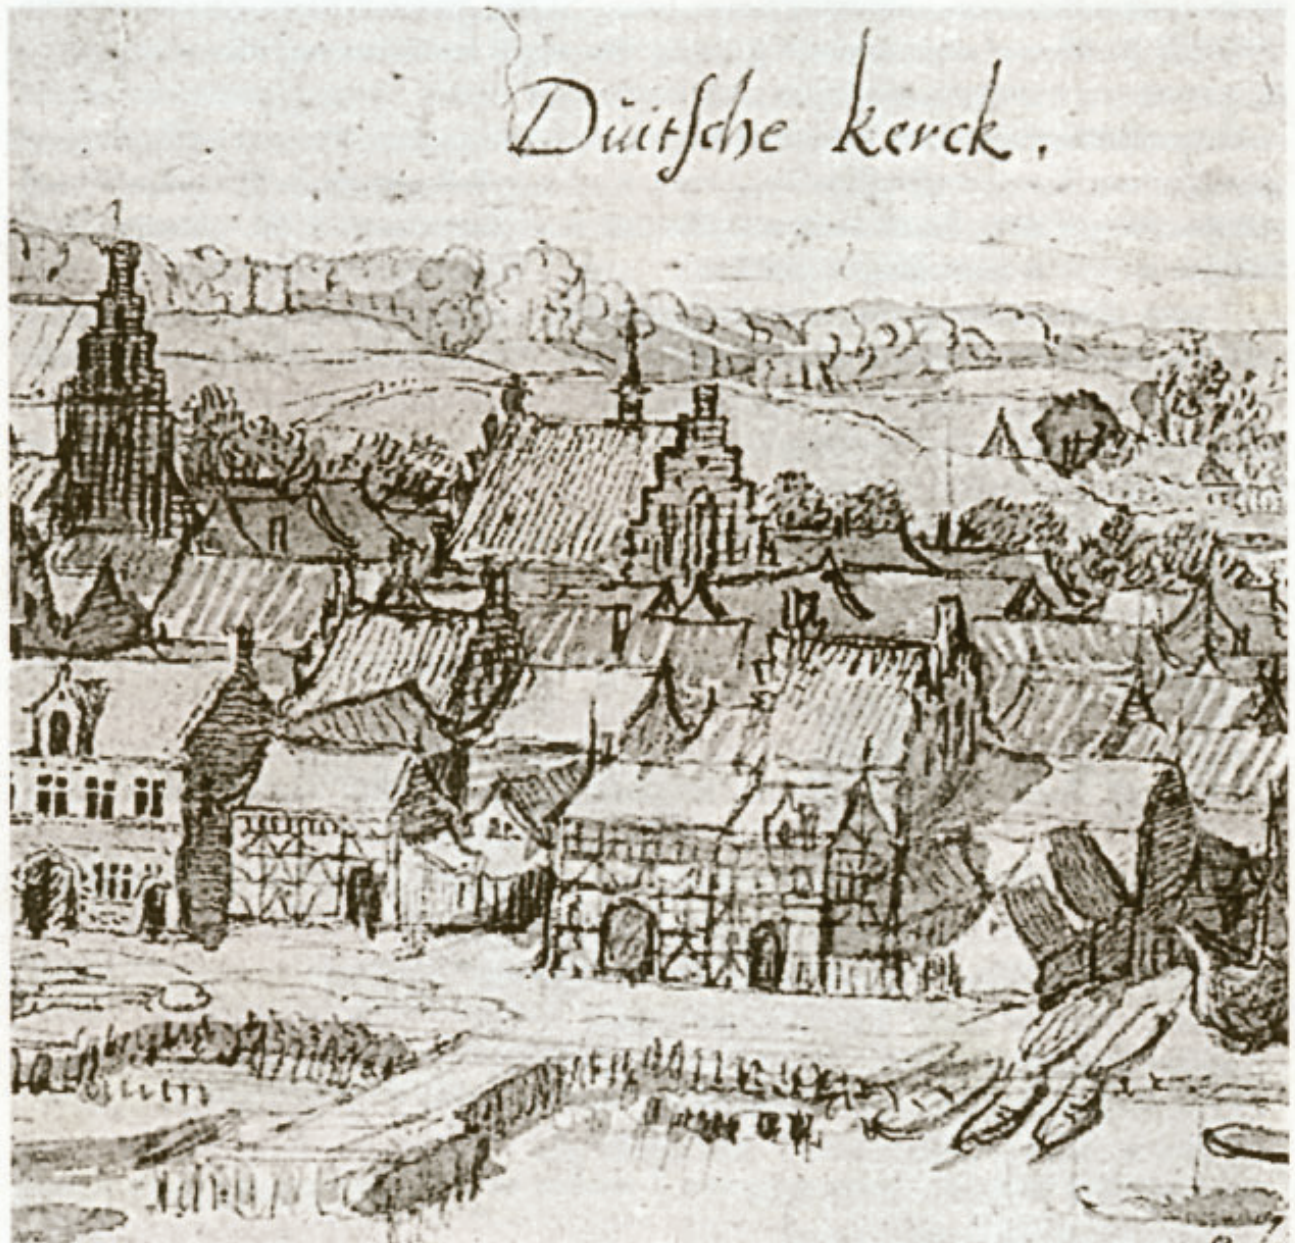 Duitsche kerck.